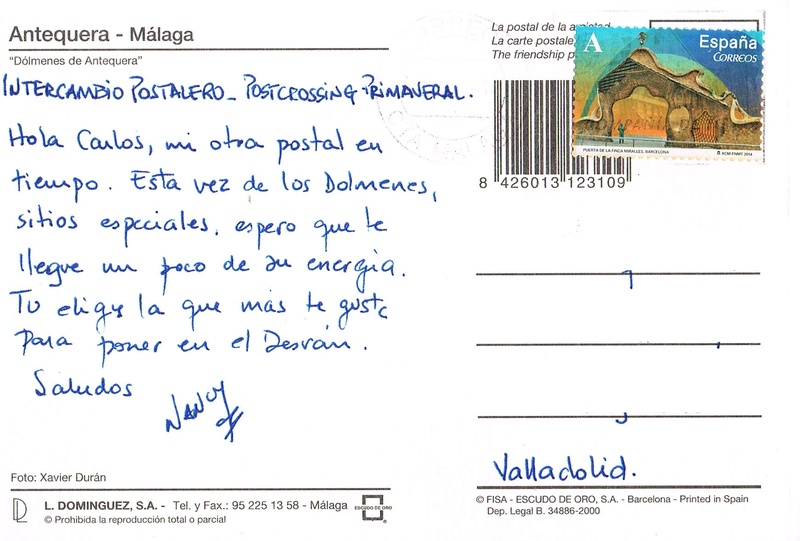 Antequera - Málaga
"Dólmenes de Antequera"
INTERCAMBIO POSTALERO_ POSTCROSSING PRIMAVERAL.
Hola Carlos, mi otra postal en
tiempo. Esta vez de los Dolmenes,
sitios especiales, espero que te
llegue un poco de su energia.
Tu eliges la que más te guste
para poner en el Desván.
Saludos
NANCY
Foto: Xavier Durán
L. DOMINGUEZ, S.A. - Tel. y Fax.: 95 225 13 58 - Málaga
© Prohibida la reproducción total o parcial
ESCUDO DE ORO
La postal de la
La carte postale
The friendship
A
España
CORREOS
PUERTA DE LA FINCA MIRALLES. BARCELONA
RCM-FNMT 2014
8 426013 123109
Valladolid.
© FISA - ESCUDO DE ORO, S.A. - Barcelona - Printed in Spain
Dep. Legal B. 34886-2000